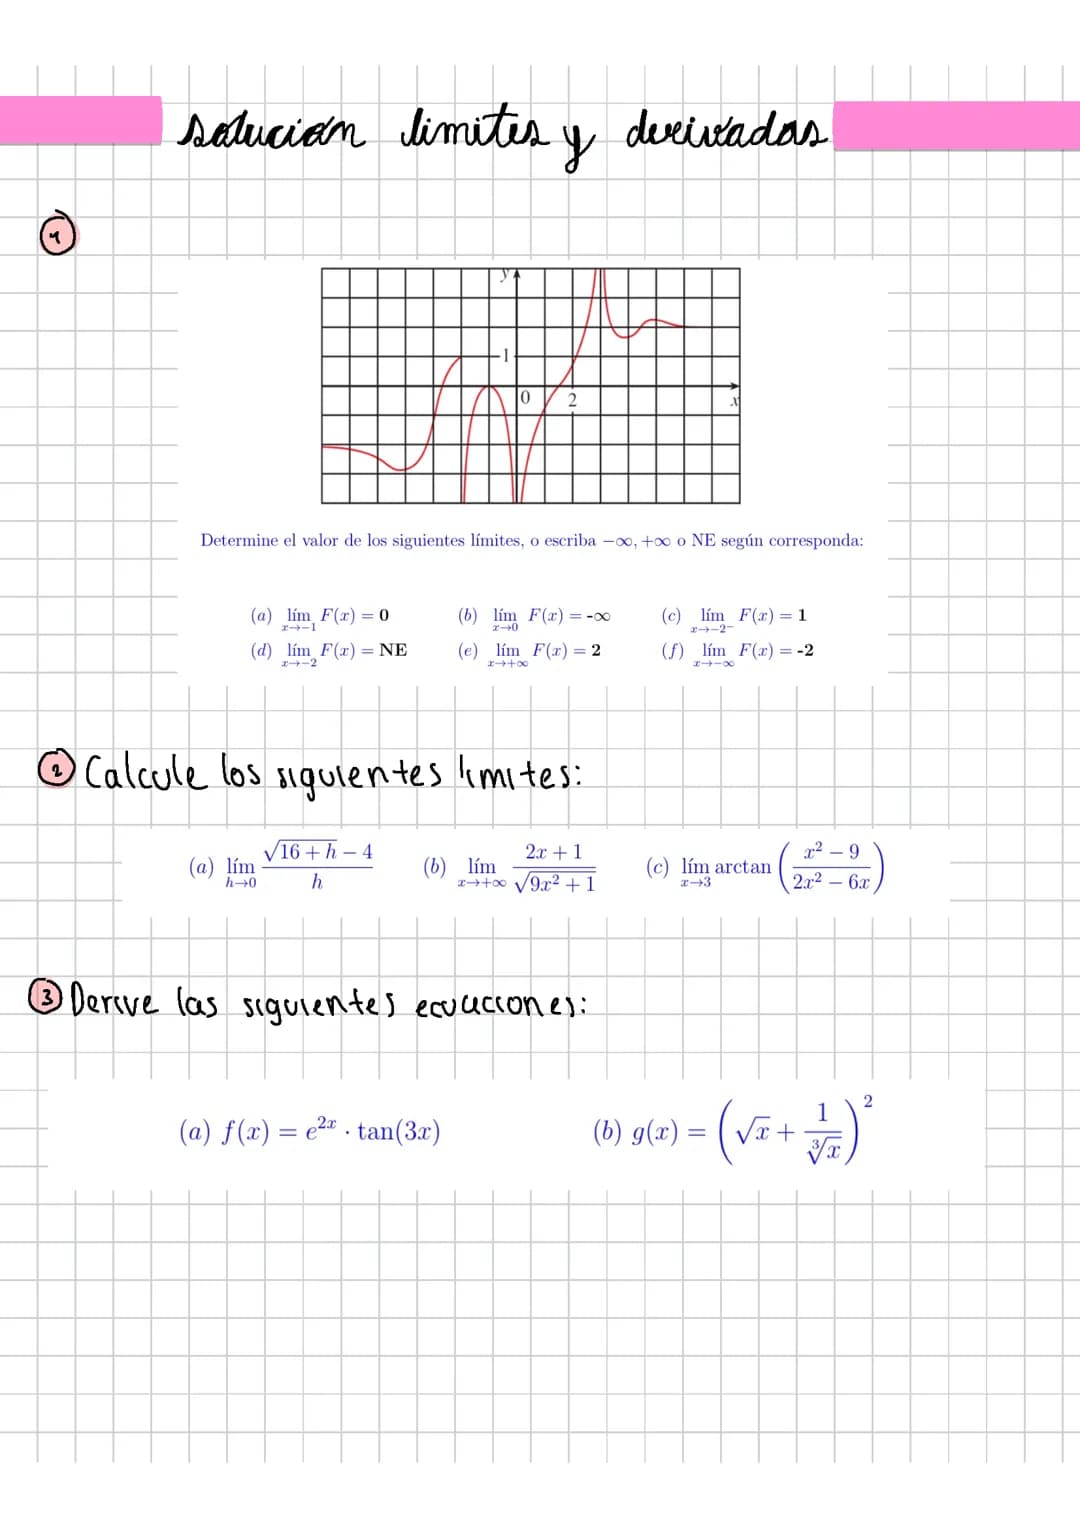 solución limites y derivadas
1
y
1
0
2
x
Determine el valor de los siguientes límites, o escriba −∞, +∞ o NE según corresponda:
(a) lím x→−1 F(x) = 0 (b) lím x→0 F(x) = -∞ (c) lím x→−2⁻ F(x) = 1
(d) lím x→−2 F(x) = NE (e) lím x→+∞ F(x) = 2 (f) lím x→−∞ F(x) = -2
2 Calcule los siguientes limites:
(a) lím h→0 (√(16 + h) − 4)/h (b) lím x→+∞ (2x + 1)/√(9x² + 1) (c) lím x→3 arctan ((x² − 9)/(2x² − 6x))
3 Derive las siguientes ecuaciones:
(a) f(x) = e²ˣ · tan(3x) (b) g(x) = (√x + 1/∛x)²